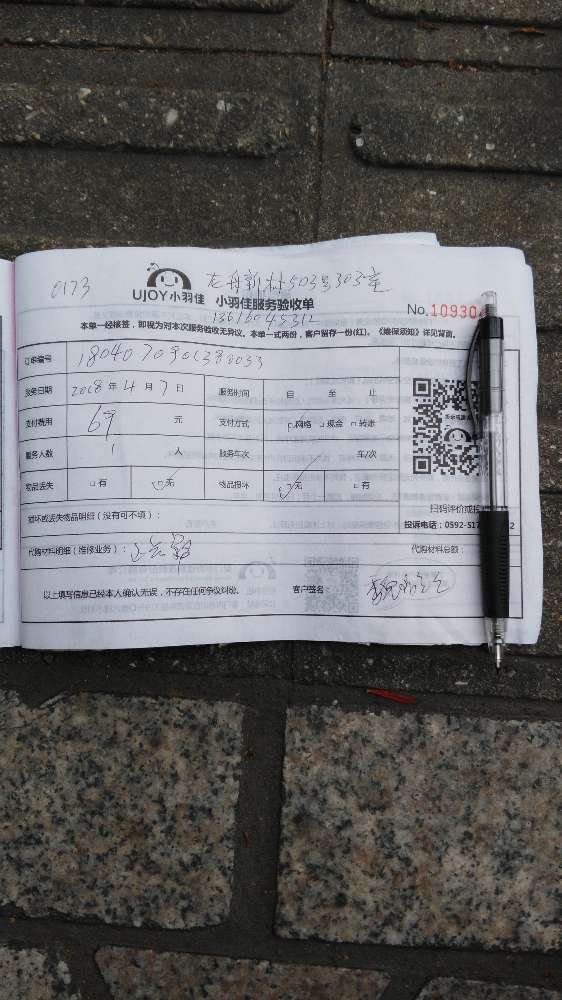 0173
龙舟新村503号303室
UJOY小羽佳 小羽佳服务验收单
13616045312
No.10930
本单一经接签，即视为对本次服务验收无异议。本单一式两份，客户留存一份(红)。《维保须知》详见背面。
订单编号
服务日期 2018年4月7日 服务时间 自 至 止
支付费用 元 支付方式 网络 现金 转账
服务人数 1 人 服务车次 车/次
物品丢失 有 无 物品损坏 无 有
扫码评价或投
损坏或丢失物品明细（没有可不填）：
投诉电话：0592-517
代购材料明细（维修业务）：
代购材料总额：
以上填写信息已经本人确认无误，不存在任何争议纠纷。 客户签名：